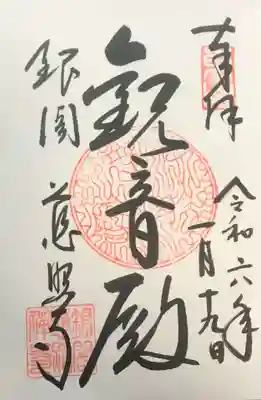 奉拝
令和六年
一月十九日
観音殿
銀閣
慈照寺